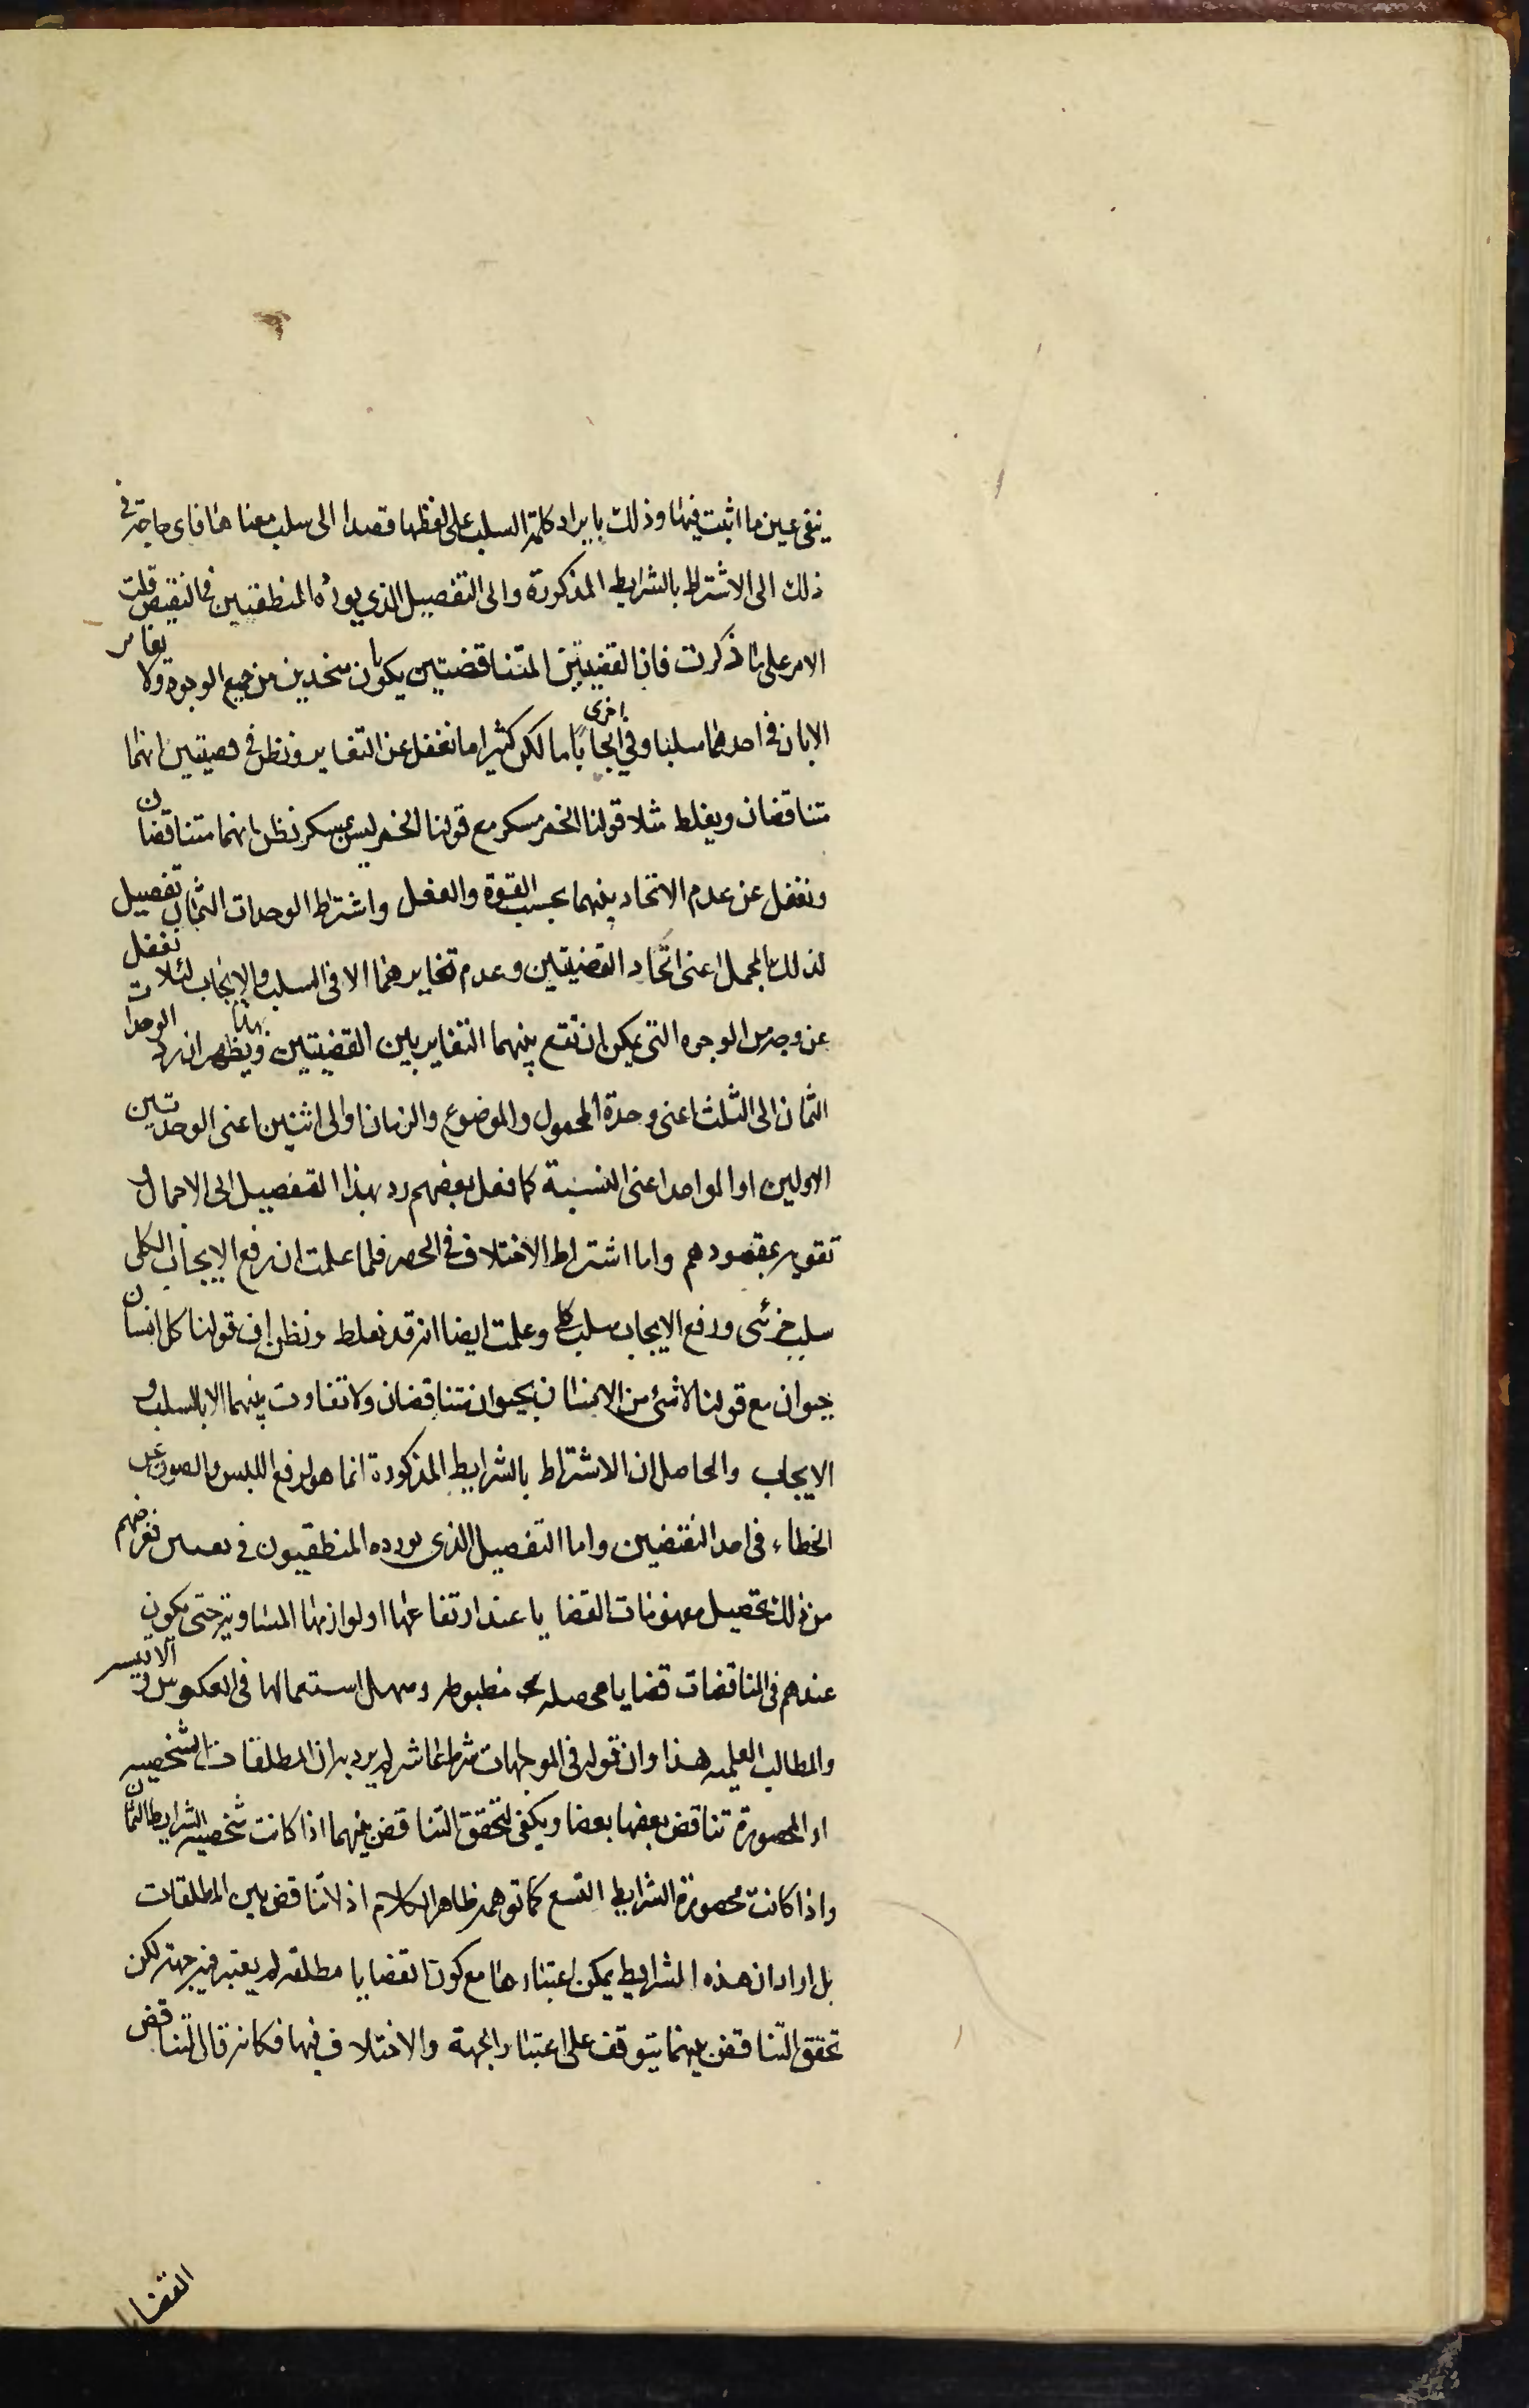 ينفى عين ما اثبت فيها وذلك بايراد كلمة السلب على لفظها قصدا الى سلب معناها فاى حاجة فى
ذلك الى الاشتراط بالشرايط المذكورة والى التفصيل الذي يورده المنطقيين فى النقيض قلت
الامر على ما ذكرت فان القضيتين المتناقضتين يكونان متحدين من جميع الوجوه ولا تغاير
الا بان فى احدهما سلبا وفى اخرى ايجابا لكن كثيرا ما نغفل عن التغاير ونظن فى قضيتين انهما
متناقضان ويغلط مثلا قولنا الخمر مسكر مع قولنا الخمر ليس بمسكر نظن بانهما متناقضان
ونغفل عن عدم الاتحاد بينهما بحسب القوة والفعل واشتراط الوحدات الثمان تفصيل
لذلك المجمل اعنى اتحاد القضيتين وعدم تغايرهما الا فى السلب والايجاب لئلا نغفل
عن وجه من الوجوه التى يمكن ان تقع بينهما التغاير بين القضيتين ويظهر بهذا ان رد الوحدات
الثمان الى الثلث اعنى وحدة المحمول والموضوع والزمان او الى اثنين اعنى الوحدتين
الاولين او الواحد اعنى النسبة كما فعل بعضهم رد بهذا التفصيل الى الاجمال و
تفويت بمقصودهم واما اشتراط الاختلاف فى الحصر فلما علمت ان رفع الايجاب الكلى
سلب جزئى ورفع الايجاب سلب كلى وعلمت ايضا انه قد نغلط ونظن ان قولنا كل انسان
حيوان مع قولنا لا شئ من الانسان بحيوان متناقضان ولا تفاوت بينهما الا بالسلب و
الايجاب والحاصل ان الاشتراط بالشرايط المذكورة انما هو لرفع اللبس والصون عن
الخطاء فى احد النقيضين واما التفصيل الذى يورده المنطقيون فى تعيين فغرضهم
من ذلك تحصيل مفهومات القضايا عند ارتفاعها او لوازمها المساوية حتى يكون
عندهم فى المناقضات قضايا محصلة مضبوطه وسهل استعمالها فى العكوس و الاقيسه
والمطالب العلميه هذا وان قوله فى الموجهات شرط عاشر لم يرد به ان المطلقات الشخصيه
او المحصورة تناقض بعضها بعضا ويكفى لتحقق التناقض بينهما اذا كانت شخصيه الشرايط الثمان
واذا كانت محصورة الشرايط التسع كما توهمه ظاهر الكلام اذ لا تناقض بين المطلقات
بل اراد ان هذه الشرايط يمكن اعتبارها مع كون القضايا مطلقه لم يعتبر فيه جهة لكن
تحقق التناقض بينهما يتوقف على اعتبار الجهة والاختلاف فيها فكانه قال تناقض
القضايا